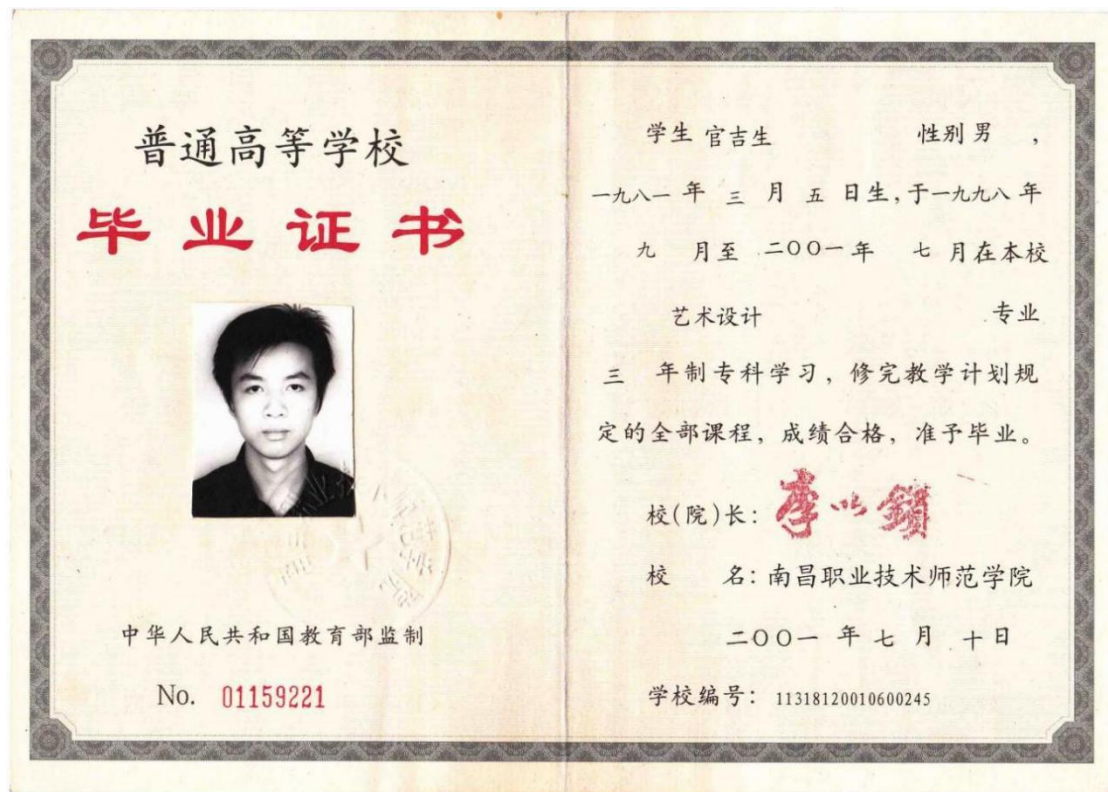 普通高等学校
毕业证书
中华人民共和国教育部监制
No. 01159221
学生 官吉生 性别 男 ,
一九八一 年 三 月 五 日生,于一九九八 年
九 月至 二〇〇一 年 七 月在本校
艺术设计 专业
三 年制专科学习，修完教学计划规
定的全部课程，成绩合格，准予毕业。
校(院)长：李以鎖
校 名：南昌职业技术师范学院
二〇〇一 年 七 月 十日
学校编号：11318120010600245